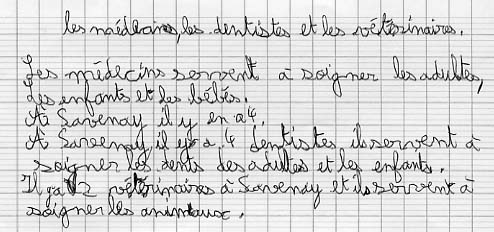 les médecins, les dentistes et les vétérinaires.
Les médecins servent à soigner les adultes,
les enfants et les bébés.
À Savenay il y en a 4.
À Savenay, il y a 4 dentistes ils servent à
soigner les dents des adultes et les enfants.
Il y a 2 vétérinaires à Savenay et ils servent à
soigner les animaux.